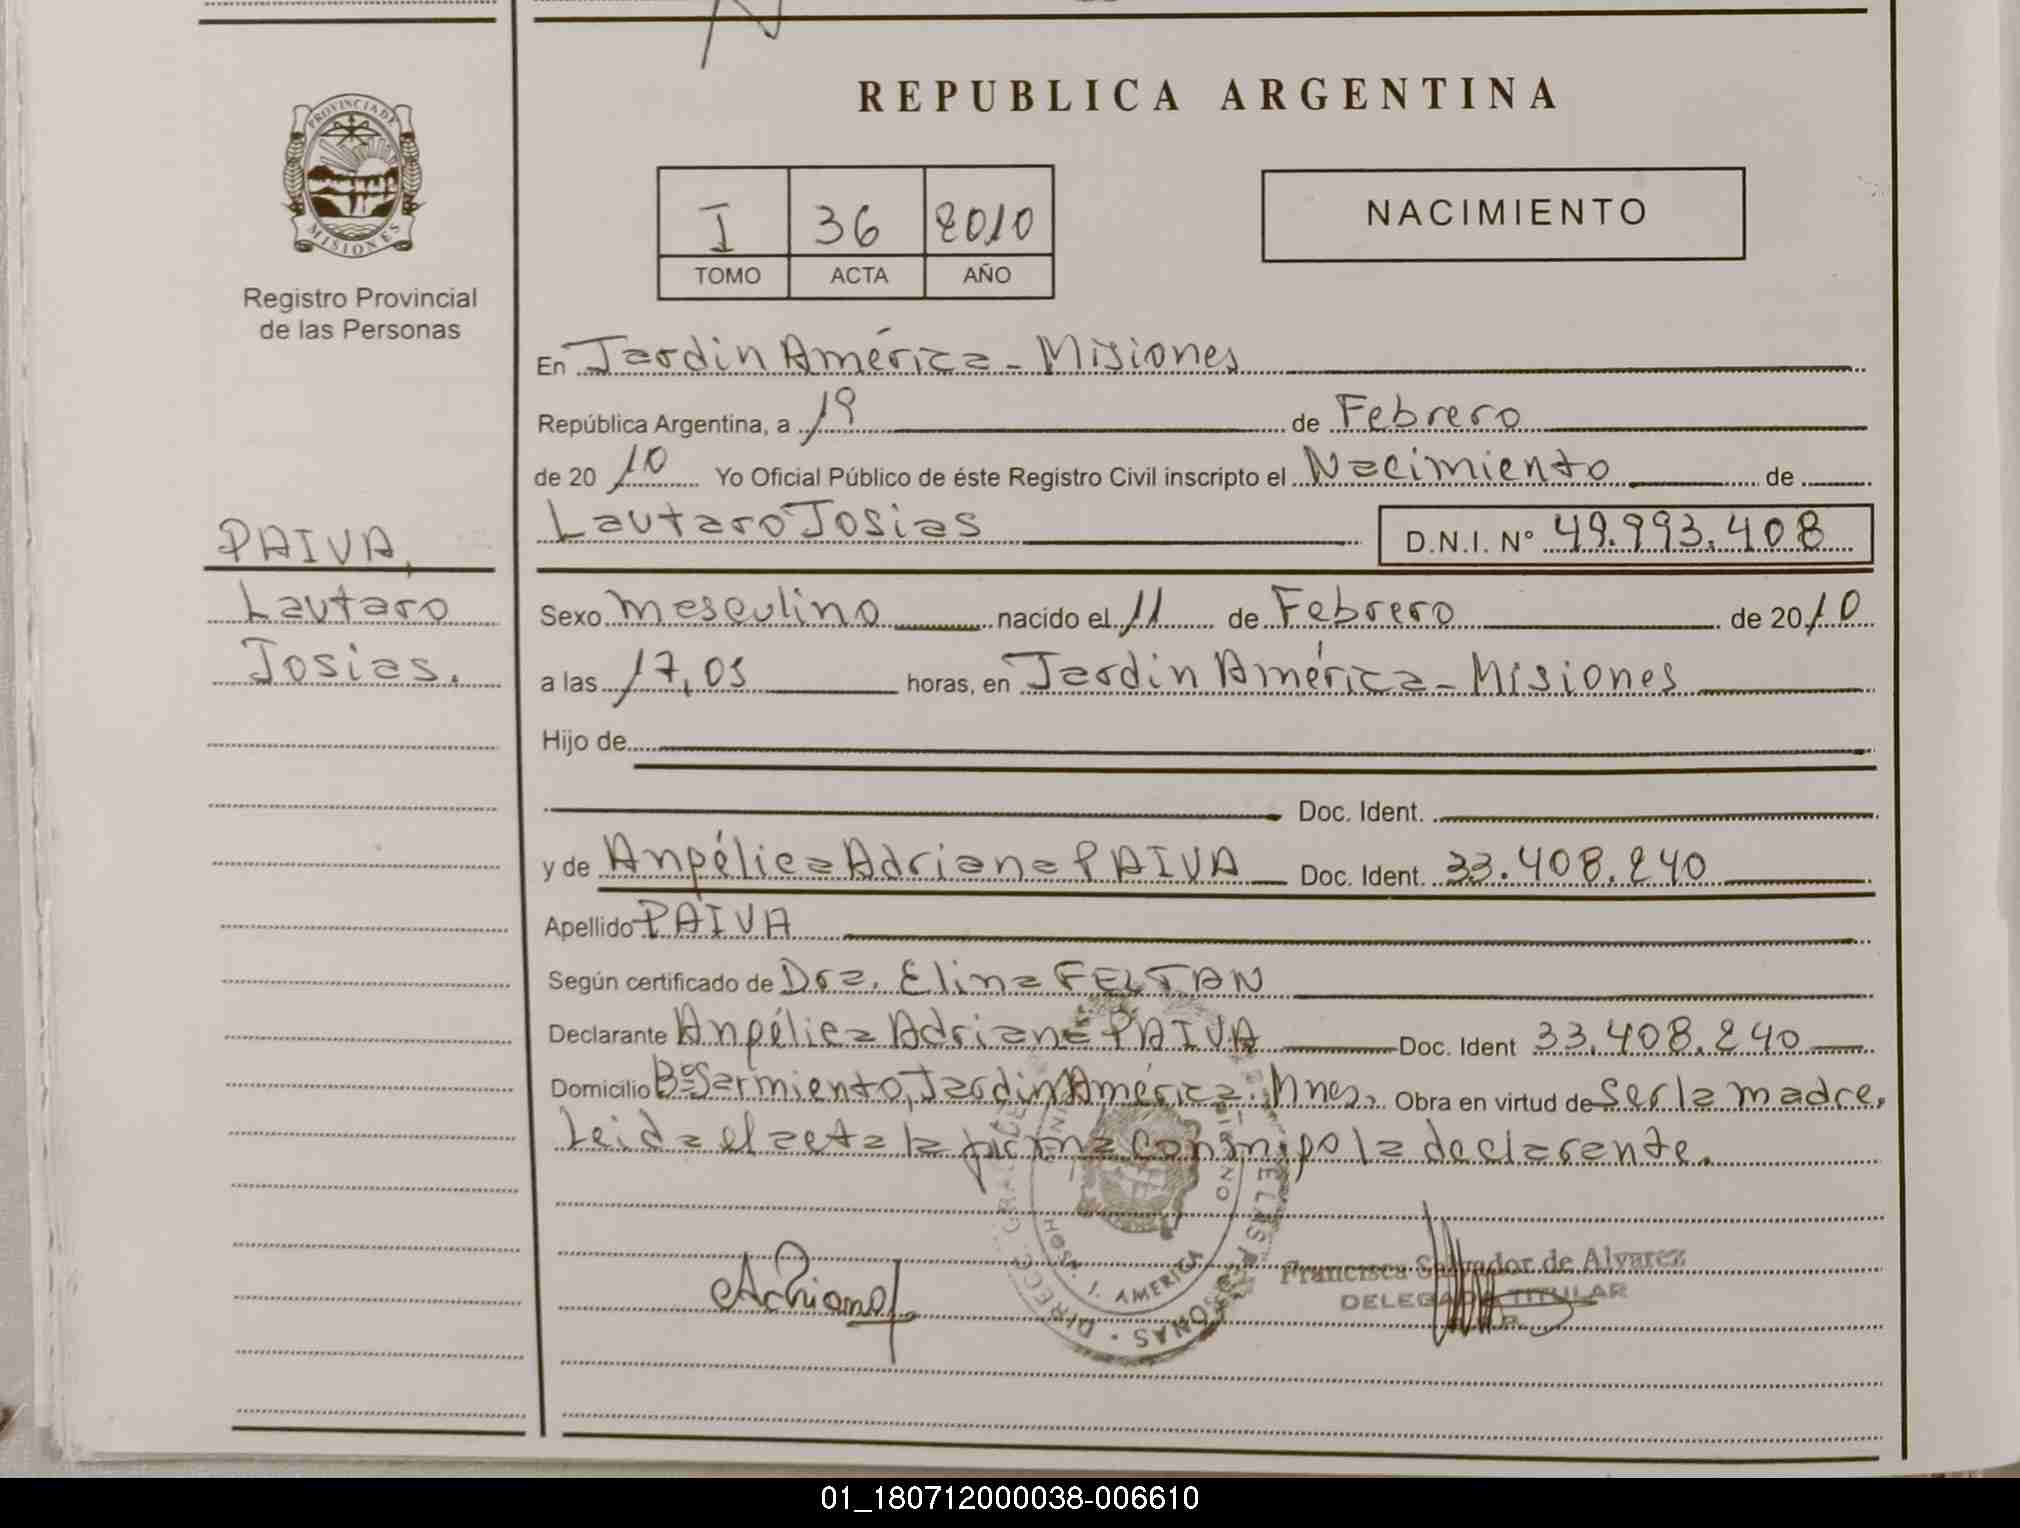 REPUBLICA ARGENTINA
PROVINCIA DE
MISIONES
Registro Provincial
de las Personas
I 36 2010
TOMO ACTA AÑO
NACIMIENTO
En Jardin América - Misiones
República Argentina, a 19 de Febrero
de 20 10 Yo Oficial Público de éste Registro Civil inscripto el Nacimiento de
Lautaro Josias D.N.I. N° 49.993.408
PAIVA,
Lautaro
Josias.
Sexo masculino nacido el 11 de Febrero de 20 10
a las 17,05 horas, en Jardin América - Misiones
Hijo de
Doc. Ident.
y de Angélica Adriana PAIVA Doc. Ident. 33.408.240
Apellido PAIVA
Según certificado de Dra. Elina FELTAN
Declarante Angélica Adriana PAIVA Doc. Ident 33.408.240
Domicilio B° Sarmiento, Jardin América. Mnes. Obra en virtud de ser la madre.
Leida el acta la firma conmigo la declarante.
Adriana
J. AMERICA
Francisca Salvador de Alvarez
DELEGADA TITULAR
01_180712000038-006610